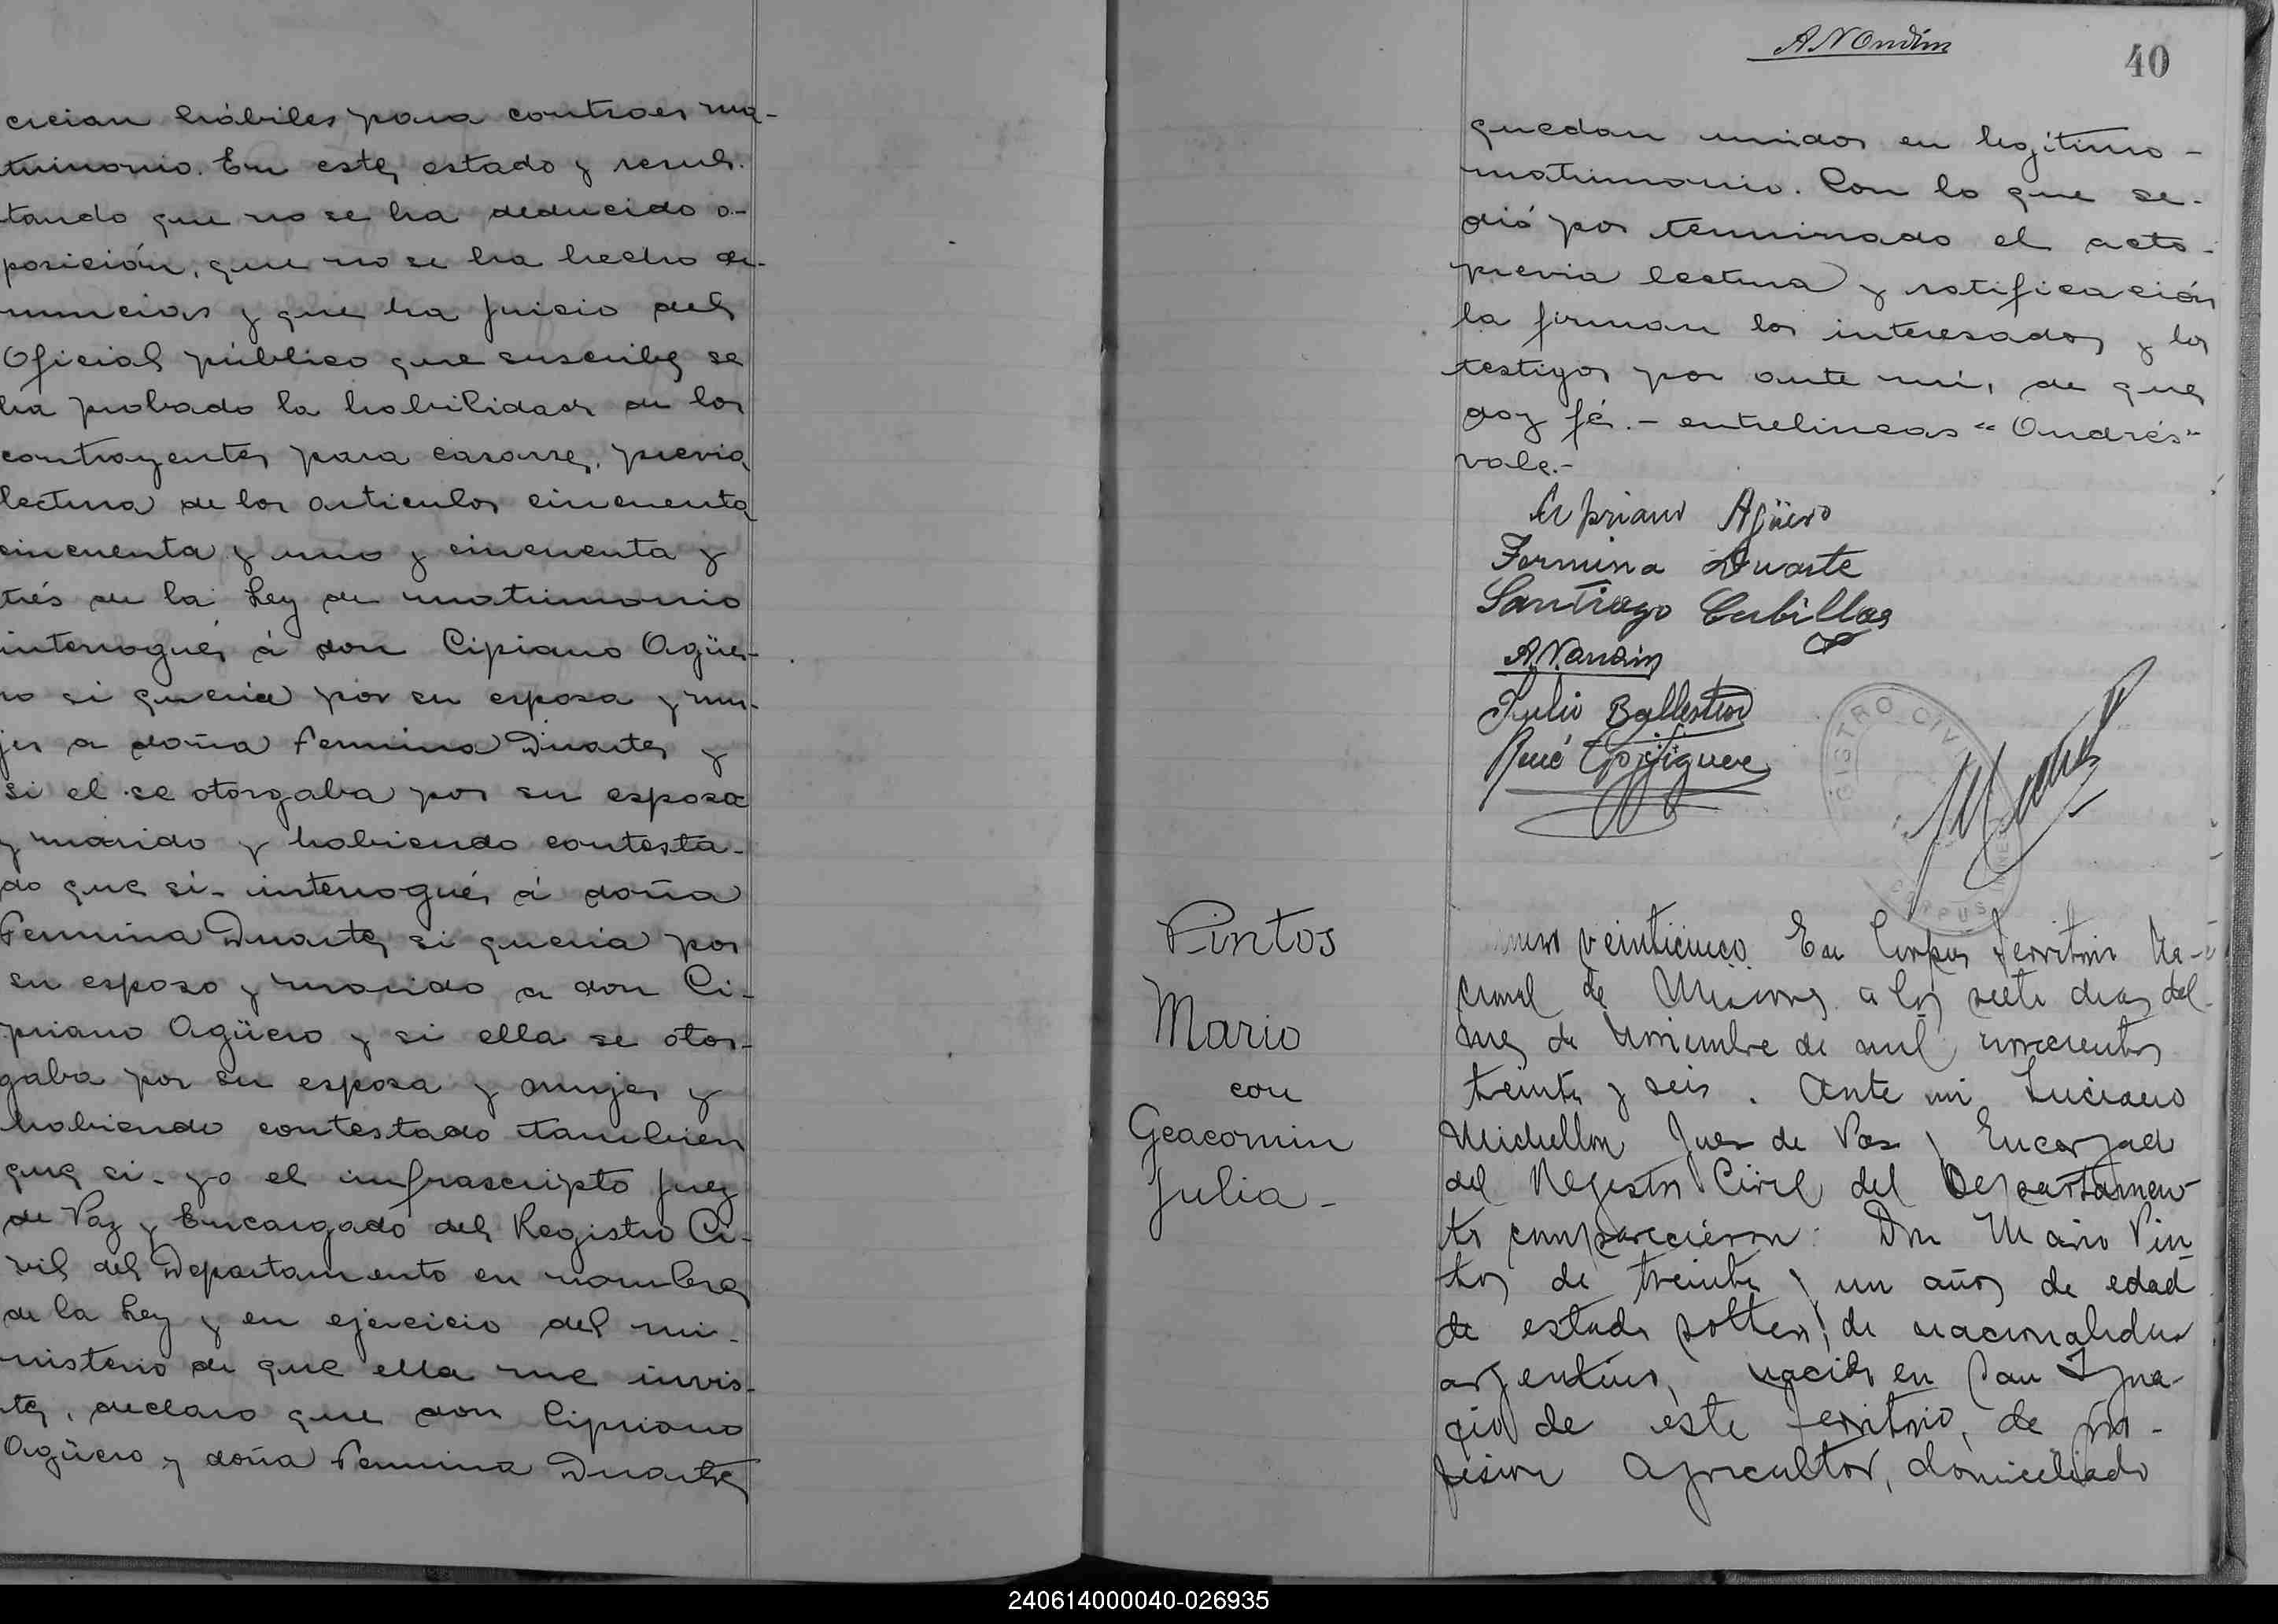 crcian hábiles para contraer ma-
trimonio. En este estado y resul-
tando que no se ha deducido o-
posición, que no se ha hecho de-
nuncias y que ha juicio del
Oficial público que suscribe se
ha probado la habilidad de los
contrayentes para casarse, previa
lectura de los articulos cincuenta
cincuenta y uno y cincuenta y
trés de la Ley de matrimonio
interrogué á don Cipiano Agüe-
ro si queria por su esposa y mu-
jer a doña Fermina Duarte y
si el se otorgaba por su esposa
y marido y habiendo contesta-
do que si- interrogué á doña
Fermina Duarte si queria por
su esposo y marido a don Ci-
priano Agüero y si ella se otor-
gaba por su esposa y mujer y
habiendo contestado tambien
que si- yo el infrascripto Juez
de Paz y Encargado del Registro Ci-
vil del Departamento en nombre
de la Ley y en ejercicio del mi-
nisterio de que ella me invis-
te, declaro que don Cipriano
Agüero y doña Fermina Duarte
40
quedan unidos en legítimo-
matrimonio. Con lo que se-
dió por terminado el acto-
previa lectura y ratificación
la firman los interesados y los
testigos por ante mí, de que
doy fé.- entrelineas "Andrés"
vale.-
Cipriano Agüero
Fermina Duarte
Santiago Cubillas
Julio Ballestero
René
GISTRO CIVI
CORPUS
Pintos
Mario
con
Geacomin
Julia-
veinticinco. En Corpus Territorio Na-
cional de Misiones a los siete dias del
mes de Noviembre de mil novecientos
treinta y seis. Ante mi Luciano
Michellon Juez de Paz y Encargado
del Registro Civil del Departamen-
to comparecieron: Don Mario Pin-
tos de treinta y un años de edad
de estado soltero, de nacionalidad
argentino, nacido en San Igna-
cio de este Territorio, de pro-
fesion agricultor, domiciliado
240614000040-026935